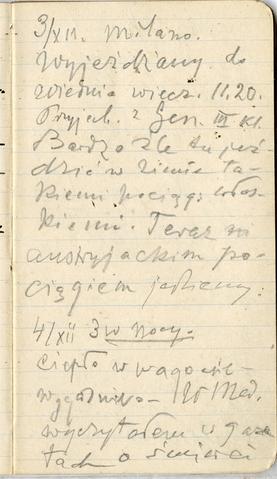 3/XII. Milano.
Wyjeżdżamy do
Wiednia wiecz. 11.20.
Przyjech. z Gen. III kl.
Bardzo źle tu jeź-
dzić w zimie ta-
kiemi pociąg. włos-
kiemi. Teraz
austryjackim po-
ciągiem jedziemy.
4/XII 3 w nocy.
Ciepło w wagonie
względnie
wyczytałem w gaze
tach o śmierci